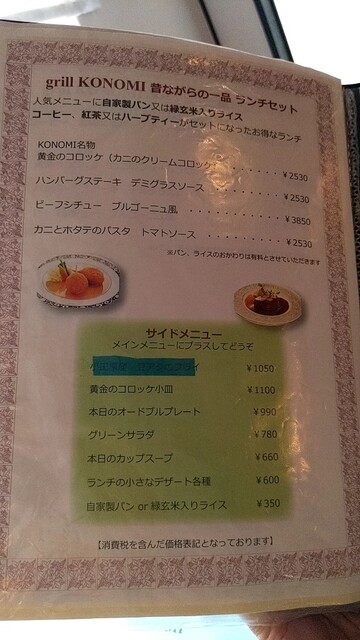 grill KONOMI 昔ながらの一品 ランチセット
人気メニューに自家製パン又は緑玄米入りライス
コーヒー、紅茶又はハーブティーがセットになったお得なランチ
KONOMI名物
黄金のコロッケ（カニのクリームコロッケ ・・・・・・・ ¥2530
ハンバーグステーキ デミグラスソース ・・・・・・・ ¥2530
ビーフシチュー ブルゴーニュ風 ・・・・・・・・・・ ¥3850
カニとホタテのパスタ トマトソース ・・・・・・・・ ¥2530
※パン、ライスのおかわりは有料とさせていただきます
サイドメニュー
メインメニューにプラスしてどうぞ
¥1050
黄金のコロッケ小皿 ¥1100
本日のオードブルプレート ¥990
グリーンサラダ ¥780
本日のカップスープ ¥660
ランチの小さなデザート各種 ¥600
自家製パン or 緑玄米入りライス ¥350
【消費税を含んだ価格表記となっております】